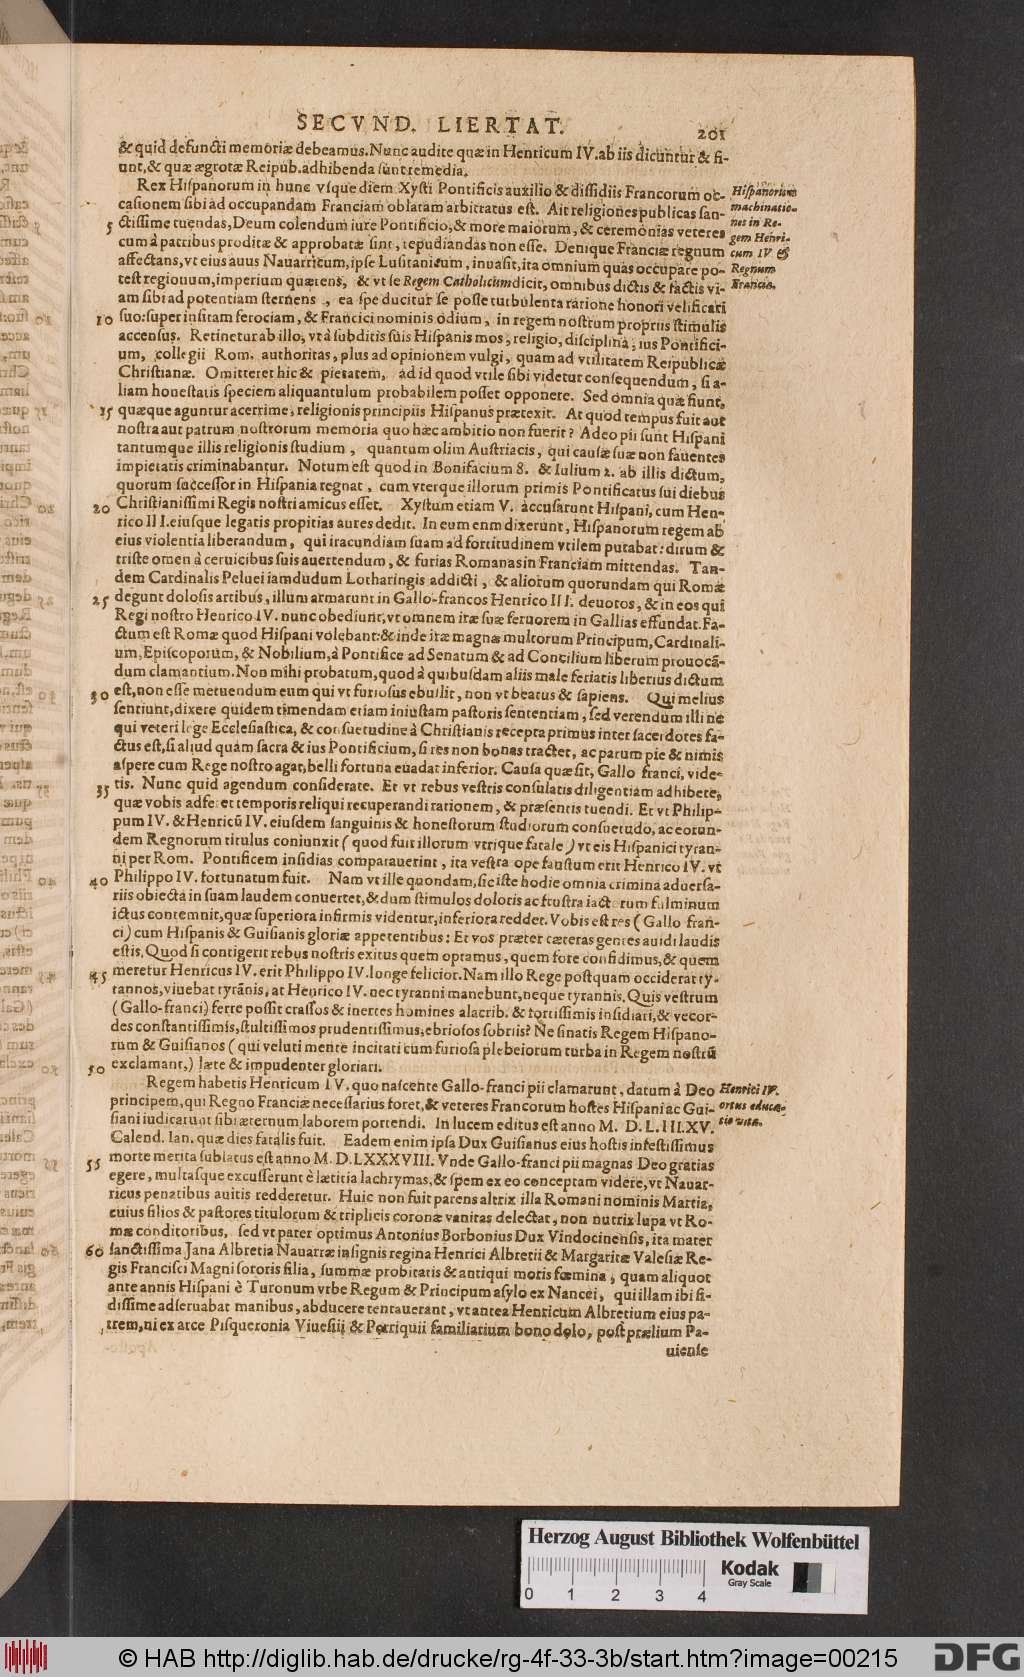 SECVND. LIERTAT. 201
& quid defuncti memoriæ debeamus. Nunc audite quæ in Henricum IV. ab iis dicuntur & fi-
unt, & quæ ægrotæ Reipub. adhibenda sunt remedia.
Rex Hispanorum in hunc vsque diem Xysti Pontificis auxilio & dissidiis Francorum oc-
casionem sibi ad occupandam Franciam oblatam arbitratus est. Ait religiones publicas san-
5 ctissime tuendas, Deum colendum iure Pontificio, & more maiorum, & ceremonias veteres
cum à patribus proditæ & approbatæ sint, repudiandas non esse. Denique Franciæ regnum
affectans, vt eius auus Nauarricum, ipse Lusitanicum, inuasit, ita omnium quas occupare po-
test regionum, imperium quærens, & vt se Regem Catholicum dicit, omnibus dictis & factis vi-
am sibi ad potentiam sternens, ea spe ducitur se posse turbulenta ratione honori velificari
10 suo: super insitam ferociam, & Francici nominis odium, in regem nostrum propriis stimulis
accensus. Retinetur ab illo, vt à subditis suis Hispanis mos, religio, disciplina, ius Pontifici-
um, collegii Rom. authoritas, plus ad opinionem vulgi, quam ad vtilitatem Reipublicæ
Christianæ. Omitteret hic & pietatem, ad id quod vtile sibi videtur consequendum, si a-
liam honestatis speciem aliquantulum probabilem posset opponere. Sed omnia quæ fiunt,
15 quæque aguntur acerrime, religionis principiis Hispanus prætexit. At quod tempus fuit aut
nostra aut patrum nostrorum memoria quo hæc ambitio non fuerit? Adeo pii sunt Hispani
tantumque illis religionis studium, quantum olim Austriacis, qui causæ suæ non fauentes
impietatis criminabantur. Notum est quod in Bonifacium 8. & Iulium 2. ab illis dictum,
quorum successor in Hispania regnat, cum vterque illorum primis Pontificatus sui diebus
20 Christianissimi Regis nostri amicus esset. Xystum etiam V. accusarunt Hispani, cum Hen-
rico III. eiusque legatis propitias aures dedit. In eum enm dixerunt, Hispanorum regem ab
eius violentia liberandum, qui iracundiam suam ad fortitudinem vtilem putabat: dirum &
triste omen à ceruicibus suis auertendum, & furias Romanas in Franciam mittendas. Tan-
dem Cardinalis Peluei iamdudum Lotharingis addicti, & aliorum quorundam qui Romæ
25 degunt dolosis artibus, illum armarunt in Gallo-francos Henrico III. deuotos, & in eos qui
Regi nostro Henrico IV. nunc obediunt, vt omnem iræ suæ feruorem in Gallias effundat. Fa-
ctum est Romæ quod Hispani volebant: & inde iræ magnæ multorum Principum, Cardinali-
um, Episcoporum, & Nobilium, à Pontifice ad Senatum & ad Concilium liberum prouocã-
dum clamantium. Non mihi probatum, quod à quibusdam aliis male feriatis liberius dictum
30 est, non esse metuendum eum qui vt furiosus ebullit, non vt beatus & sapiens. Qui melius
sentiunt, dixere quidem timendam etiam iniustam pastoris sententiam, sed verendum illi ne
qui veteri lege Ecclesiastica, & consuetudine à Christianis recepta primus inter sacerdotes fa-
ctus est, si aliud quàm sacra & ius Pontificium, si res non bonas tractet, ac parum pie & nimis
aspere cum Rege nostro agat, belli fortuna euadat inferior. Causa quæ sit, Gallo franci, vide-
35 tis. Nunc quid agendum considerate. Et vt rebus vestris consulatis diligentiam adhibete,
quæ vobis adferet temporis reliqui recuperandi rationem, & præsentis tuendi. Et vt Philip-
pum IV. & Henricũ IV. eiusdem sanguinis & honestorum studiorum consuetudo, ac eorun-
dem Regnorum titulus coniunxit (quod fuit illorum vtrique fatale) vt eis Hispanici tyran-
ni per Rom. Pontificem insidias compatauerint, ita vestra ope faustum erit Henrico IV. vt
40 Philippo IV. fortunatum fuit. Nam vt ille quondam, sic iste hodie omnia crimina aduersa-
riis obiecta in suam laudem conuertet, & dum stimulos doloris ac frustra iactorum fulminum
ictus contemnit, quæ superiora infirmis videntur, inferiora reddet. Vobis est res (Gallo fran-
ci) cum Hispanis & Guisianis gloriæ appetentibus: Et vos præter cæteras gentes auidi laudis
estis. Quod si contigerit rebus nostris exitus quem optamus, quem fore confidimus, & quem
45 meretur Henricus IV. erit Philippo IV. longe felicior. Nam illo Rege postquam occiderat ty-
rannos, viuebat tyrãnis, at Henrico IV. nec tyranni manebunt, neque tyrannis. Quis vestrum
(Gallo-franci) ferre possit crassos & inertes homines alacrib. & fortissimis insidiari, & vecor-
des constantissimis, stultissimos prudentissimus, ebriosos sobriis? Ne sinatis Regem Hispano-
rum & Guisianos (qui veluti mente incitati cum furiosa plebeiorum turba in Regem nostrũ
50 exclamant,) læte & impudenter gloriari.
Regem habetis Henricum IV. quo nascente Gallo-franci pii clamarunt, datum à Deo
principem, qui Regno Franciæ necessarius foret, & veteres Francorum hostes Hispani ac Gui-
siani iudicarunt sibi æternum laborem portendi. In lucem editus est anno M. D. L. III. XV.
Calend. Ian. quæ dies fatalis fuit. Eadem enim ipsa Dux Guisianus eius hostis infestissimus
55 morte merita sublatus est anno M. D. LXXXVIII. Vnde Gallo-franci pii magnas Deo gratias
egere, multasque excusserunt è lætitia lachrymas, & spem ex eo conceptam videre, vt Nauar-
ricus penatibus auitis redderetur. Huic non fuit parens altrix illa Romani nominis Martia,
cuius filios & pastores titulorum & triplicis coronæ vanitas delectat, non nutrix lupa vt Ro-
mæ conditoribus, sed vt pater optimus Antonius Borbonius Dux Vindocinensis, ita mater
60 sanctissima Jana Albretia Nauarræ insignis regina Henrici Albretii & Margaritæ Valesiæ Re-
gis Francisci Magni sororis filia, summæ probitatis & antiqui moris fœmina, quam aliquot
ante annis Hispani è Turonum vrbe Regum & Principum asylo ex Nancei, qui illam ibi fi-
dissime adseruabat manibus, abducere tentauerant, vt antea Henricum Albretium eius pa-
trem, ni ex arce Pisqueronia Viuesiij & Perriquii familiarium bono dolo, post prælium Pa-
uiense
Hispanorum
machinatio-
nes in Re-
gem Henri-
cum IV. &
Regnum
Franciæ.
Henrici IV.
ortus educa-
tio vita.
Herzog August Bibliothek Wolfenbüttel
Kodak
Gray Scale
0 1 2 3 4
© HAB http://diglib.hab.de/drucke/rg-4f-33-3b/start.htm?image=00215
DFG